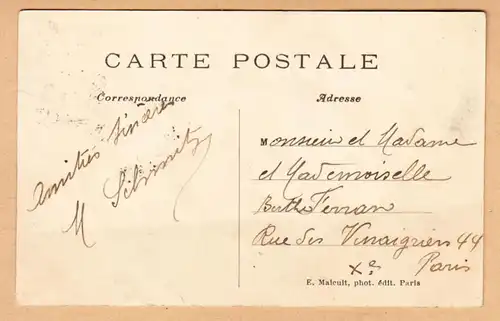 CARTE POSTALE
Correspondance
Adresse
Amitiés sincères
M Schmitz
Monsieur et Madame
et Mademoiselle
Berthe Ferran
Rue des Vinaigriers 44
Xe Paris
E. Malcuit, phot. édit. Paris